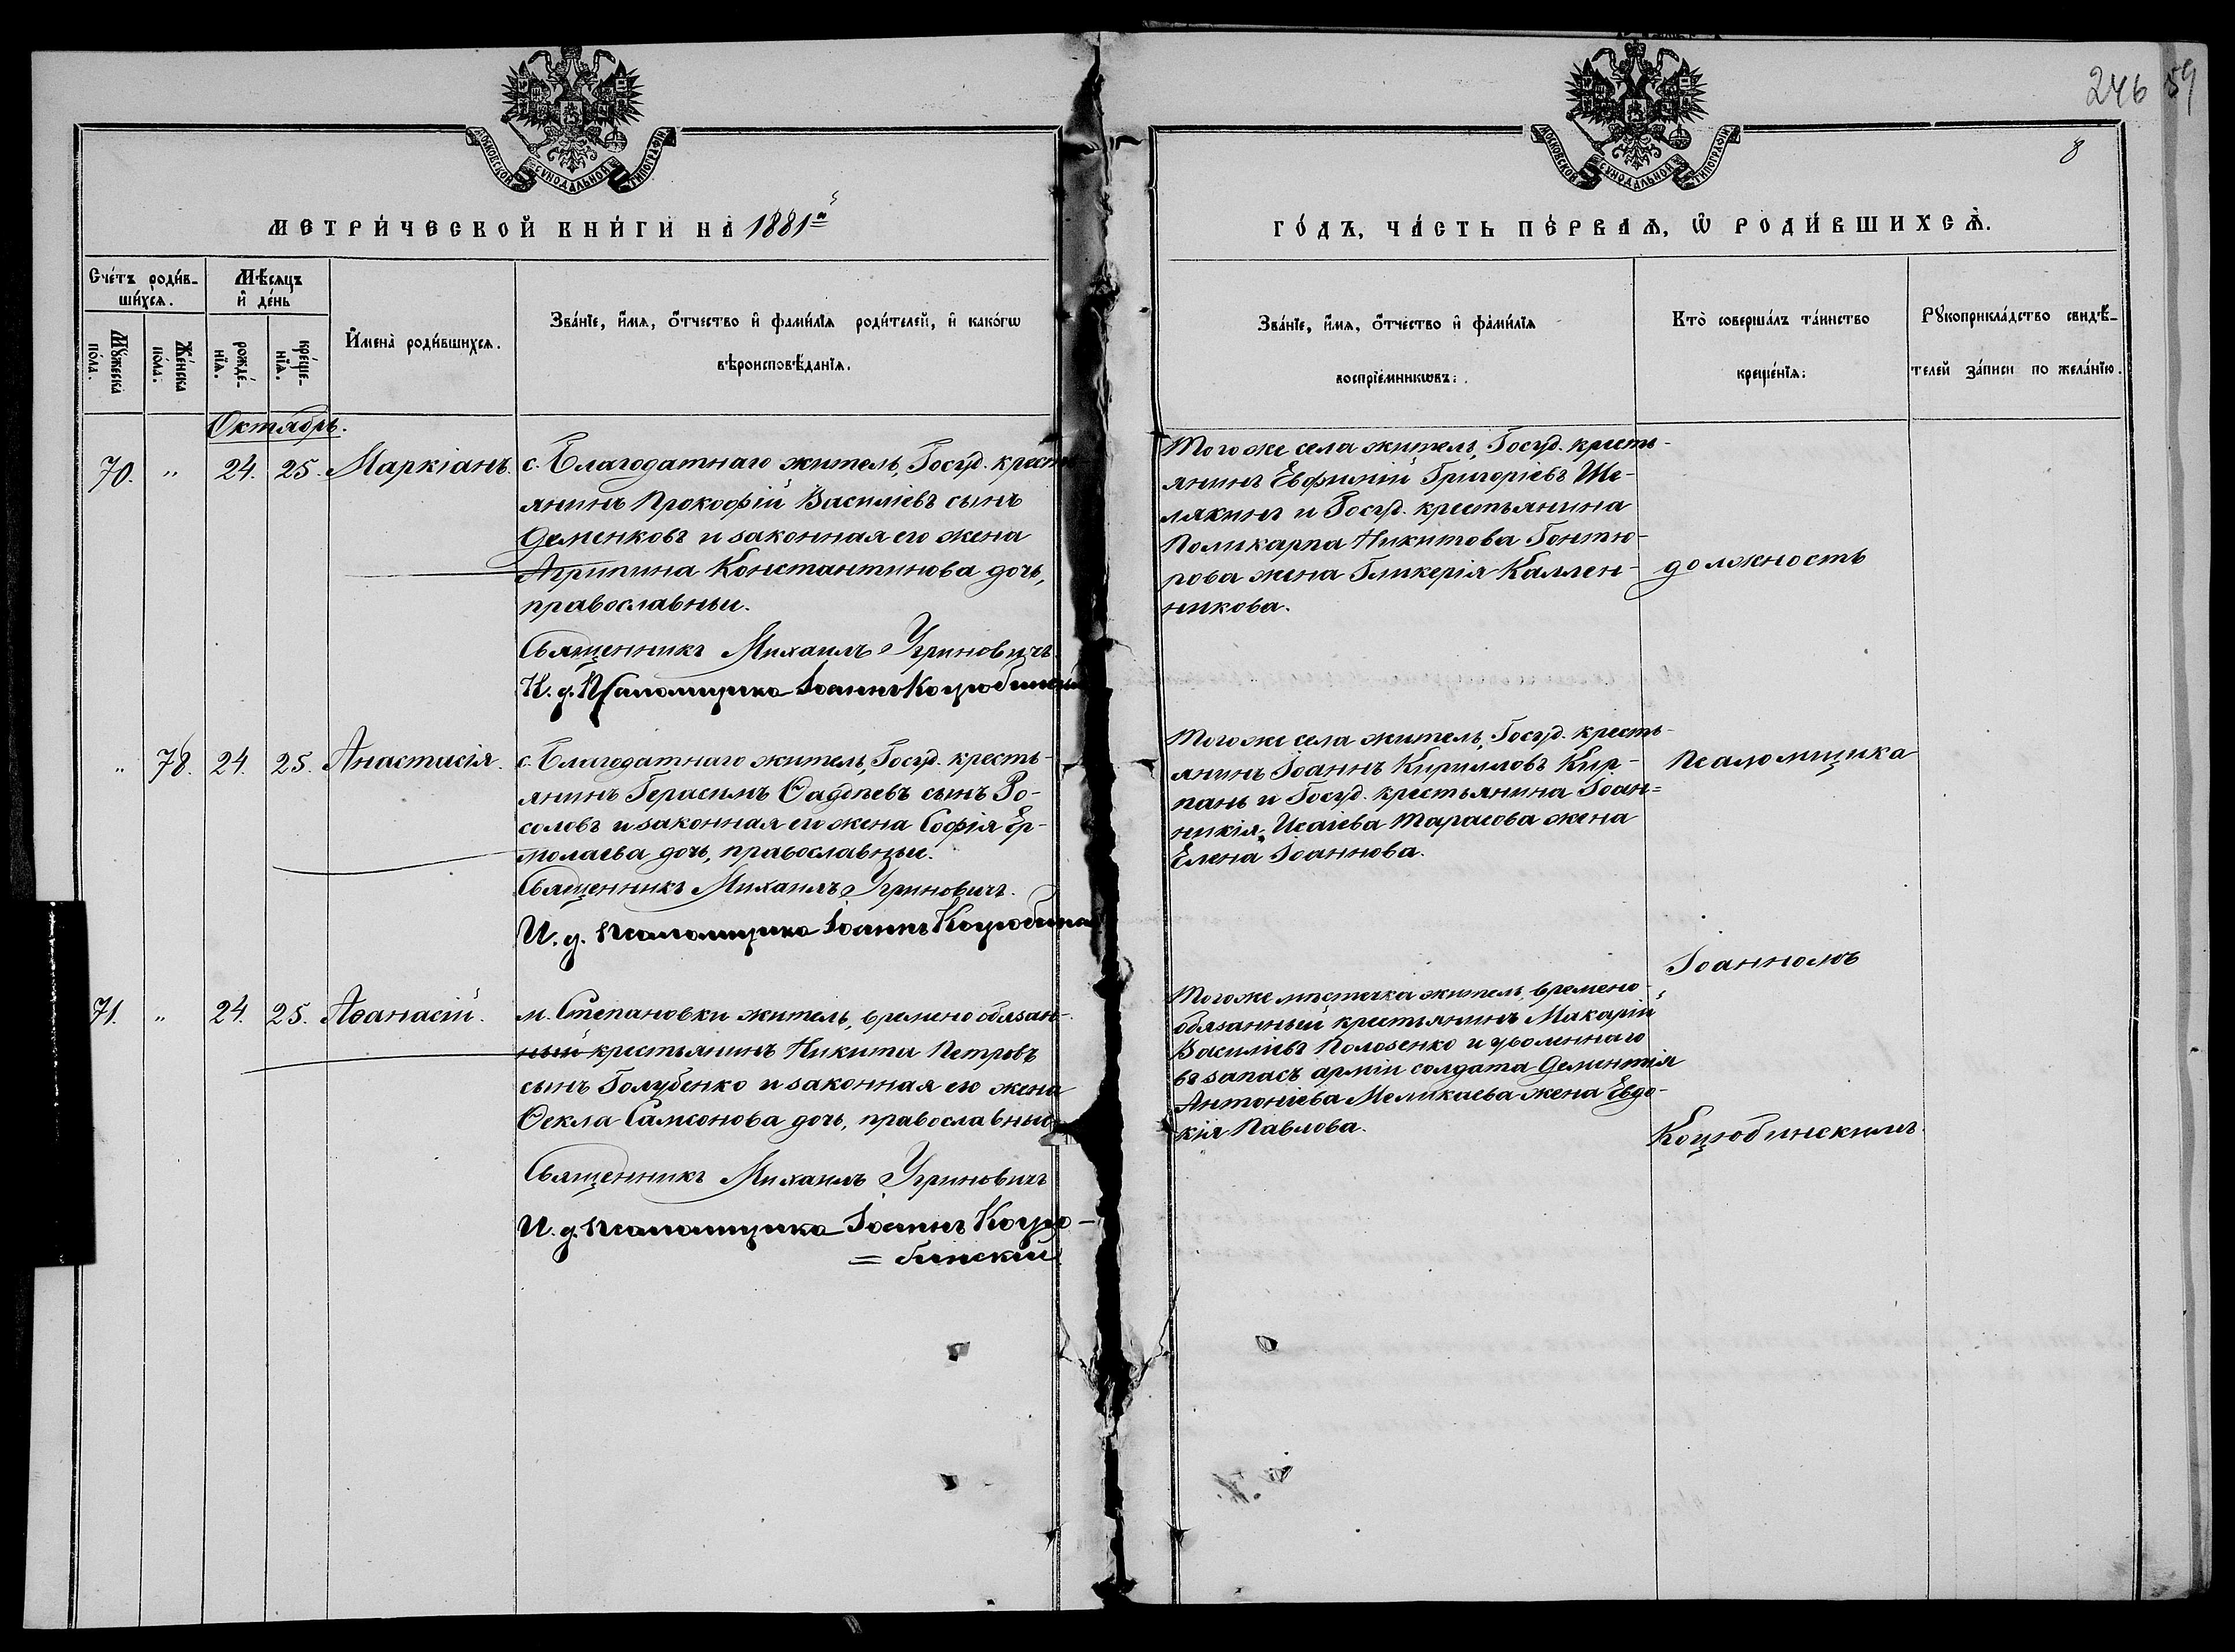 246 59
8
МОСКОВСКОЙ СѴНОДАЛЬНОЙ ТИПОГРАФІИ
МОСКОВСКОЙ СѴНОДАЛЬНОЙ ТИПОГРАФІИ
МЕТРИ́ЧЕСКОЙ КНИ́ГИ НА 1881й
ГО́ДЪ, ЧА́СТЬ ПЕ́РВАѦ, Ѡ РОДИ́ВШИХСѦ.
Сче́тъ роди́в-
шихся.
Мѣ́сяцъ
и де́нь
Му́жеска по́ла.
Же́нска по́ла.
рожде́-
нїя.
креще́-
нїя.
Имена̀ роди́вшихся.
Зва́нїе, и́мя, о́тчество и фами́лїя роди́телей, и како́гѡ
вѣроисповѣ́данїя.
Зва́нїе, и́мя, о́тчество и фами́лїя
воспрїе́мникѡвъ.
Кто̀ соверша́лъ та́инство
креще́нїя.
Рꙋкоприкла́дство свидѣ́-
телей за́писи по жела́нїю.
Октябрь.
70. " 24. 25. Маркіанъ.
с. Благодатнаго житель, Госуд. кресть
янинъ Прокофій Василіевъ сынъ
Деменковъ и законная его жена
Агрипина Константинова дочь,
православныи.
Священникъ Михаилъ Угриновичъ.
И. д. Псаломщика Іоаннъ Коцюбинскій
Того же села житель, Госуд. кресть-
янинъ Евфимій Григоріевъ Ше-
лякинъ и Госуд. крестьянина
Поликарпа Никитова Гонтю-
рова жена Гликерія Каллен-
никова.
должность
" 78. 24. 25. Анастасія.
с. Благодатнаго житель, Госуд. кресть-
янинъ Герасимъ Ѳаддѣевъ сынъ Ро-
соловъ и законная его жена Софія Ер-
молаева дочь, православныи.
Священникъ Михаилъ Угриновичъ.
И. д. псаломщика Іоаннъ Коцюбинс
Того же села житель, Госуд. кресть-
янинъ Іоаннъ Кирилловъ Кир-
пань и Госуд. крестьянина Іоан=
никія Исаіева Тарасова жена
Елена Іоаннова.
псаломщика
Іоанномъ
71. " 24. 25. Аѳанасій.
м. Степановки житель, временообязан-
ный крестьянинъ Никита Петровъ
сынъ Голубенко и законная его жена
Ѳекла Самсонова дочь, православныи
Священникъ Михаилъ Угриновичъ
И. д. псаломщика Іоаннъ Коцю-
=бинскій
Того же мѣстечка житель, времено-
обязанный крестьянинъ Макарій
Василіевъ Полозенко и уволеннаго
въ запасъ арміи солдата Дементія
Антоніева Меликаева жена Евдо-
кія Павлова.
Коцюбинскимъ.